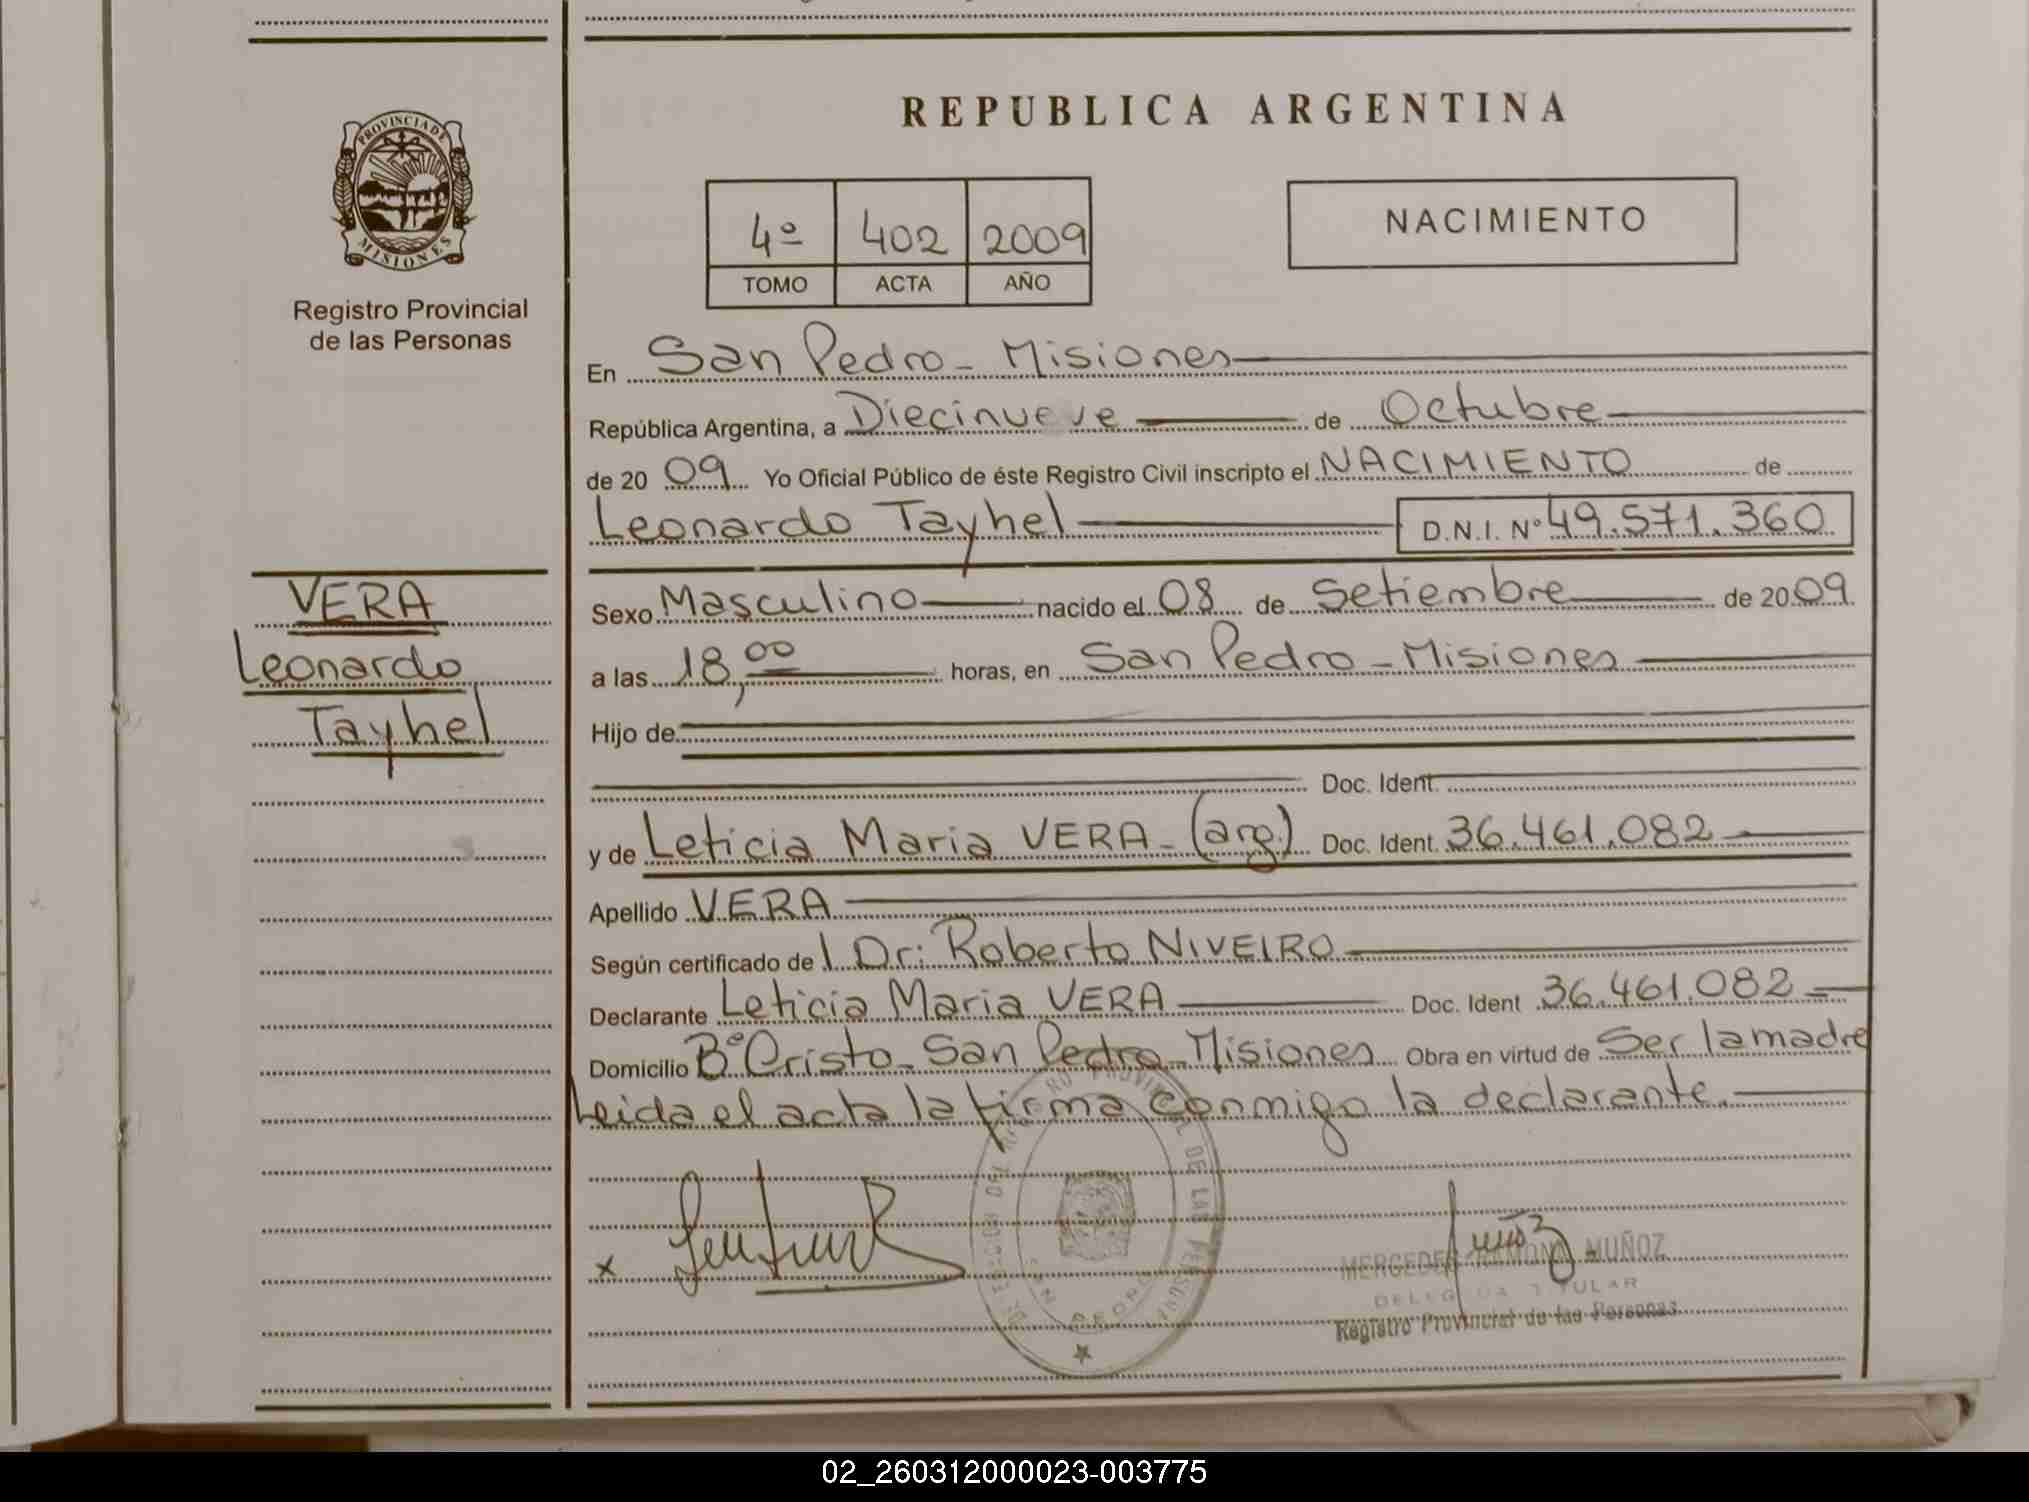 REPUBLICA ARGENTINA
PROVINCIA DE
MISIONES
Registro Provincial
de las Personas
4º 402 2009
TOMO ACTA AÑO
NACIMIENTO
En San Pedro - Misiones
República Argentina, a Diecinueve de Octubre
de 20 09 Yo Oficial Público de éste Registro Civil inscripto el NACIMIENTO de
Leonardo Tayhel D.N.I. Nº 49.571.360
VERA
Leonardo
Tayhel
Sexo Masculino nacido el 08 de Setiembre de 20 09
a las 18,00 horas, en San Pedro - Misiones
Hijo de
Doc. Ident.
y de Leticia Maria VERA - (arg.) Doc. Ident. 36.461.082
Apellido VERA
Según certificado de l Dr: Roberto NIVEIRO
Declarante Leticia Maria VERA Doc. Ident 36.461.082
Domicilio Bº Cristo - San Pedro - Misiones Obra en virtud de Ser la madre
Leida el acta la firma conmigo la declarante.
x
PROVINCIAL DE LAS PERSONAS
SAN PEDRO
MERCEDES RAMONA MUÑOZ
DELEGADA TITULAR
Registro Provincial de las Personas
02_260312000023-003775